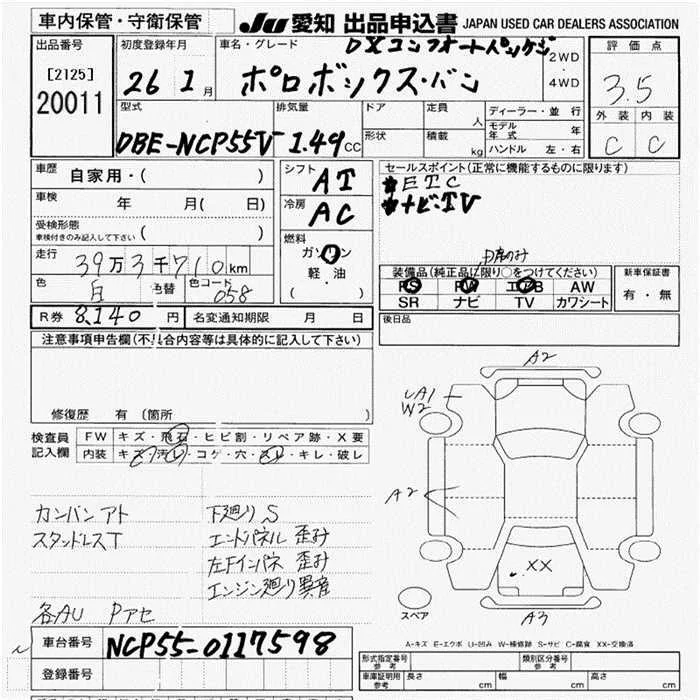 車内保管・守衛保管
JU 愛知 出品申込書 JAPAN USED CAR DEALERS ASSOCIATION
出品番号
[2125]
20011
初度登録年月
26 1月
車名・グレード
DXコンフォートパッケージ
プロボックス・バン
2WD
・
4WD
評価点
3.5
外装 内装
C C
型式
DBE-NCP55V
排気量
1.49cc
ドア
形状
定員
人
積載
kg
ディーラー・並行
モデル年式 年
ハンドル 左・右
車歴
自家用・( )
車検
年 月( 日)
受検形態
車検付きのみ記入して下さい ( )
走行
39万3千710km
色
白
色替
色コード
058
R券 8,140円 名変通知期限 月 日
シフト
AT
冷房
AC
燃料
ガソリン
軽油
( )
セールスポイント(正常に機能するものに限ります)
ETC
ナビ・TV
装備品(純正品に限り○をつけてください)
PS PW エアB AW
SR ナビ TV カワシート
新車保証書
有・無
後日品
注意事項申告欄(不具合内容等は具体的に記入して下さい)
修復歴 有(箇所 )
検査員
記入欄
FW キズ・飛石・ヒビ割・リペア跡・X要
内装 キズ・汚レ・コゲ・穴・スレ・キレ・破レ
カンバンアト
スタッドレスT
下廻りS
エンドパネル 歪み
左Fインパネ 歪み
エンジン廻り異音
各AU Pアセ
A2
UA1
W2
A2
XX
A3
スペア
A-キズ E-エクボ U-凹み W-補修跡 S-サビ C-腐食 XX-交換済
車台番号 NCP55-0117598
登録番号
形式指定番号
参考
類別区分番号
参考
車庫証明用
参考
長さ cm
幅 cm
高さ cm